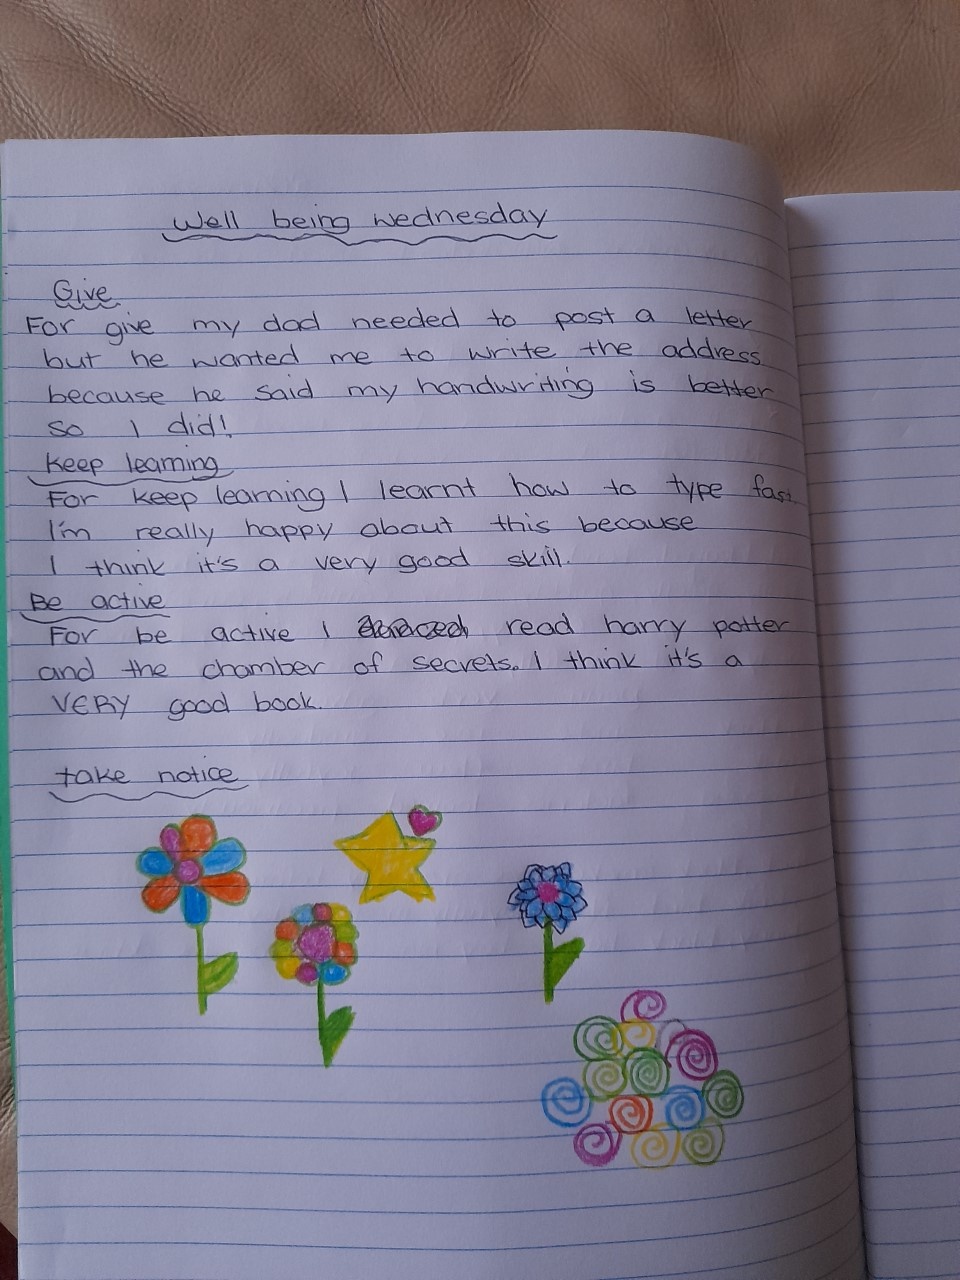 Well being wednesday
Give
For give my dad needed to post a letter
but he wanted me to write the address
because he said my handwriting is better
so I did!
Keep learning
For keep learning I learnt how to type fast
I'm really happy about this because
I think it's a very good skill.
Be active
For be active I read harry potter
and the chamber of secrets. I think it's a
VERY good book.
take notice